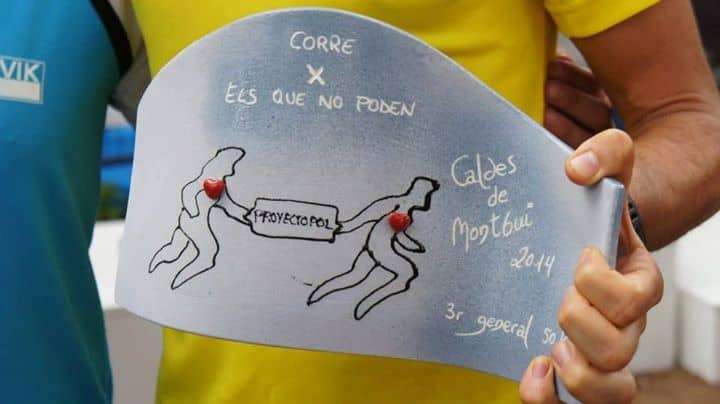 VIK
CORRE
X
ELS QUE NO PODEN
PROYECTOPOL
Caldes
de
Montbui
2014
3r general 50